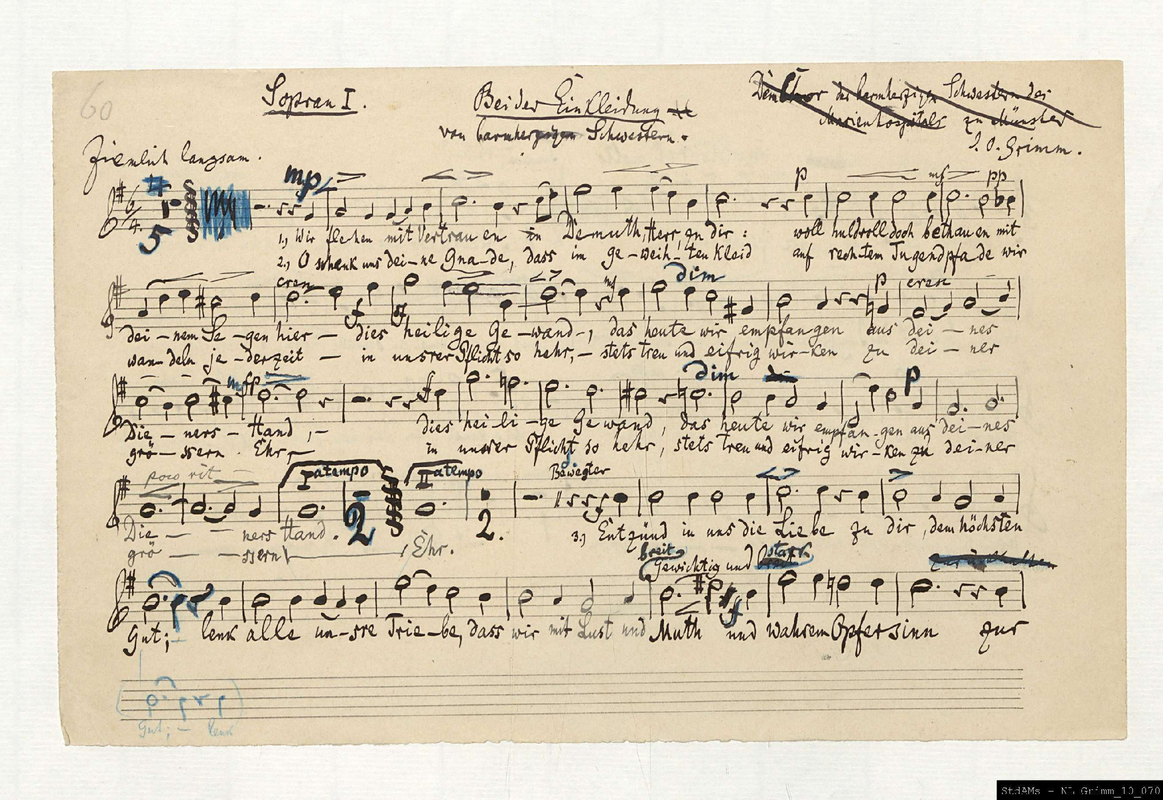 60
Sopran I.
Bei der Einkleidung
von barmherzigen Schwestern.
Dem Chor der barmherzigen Schwestern des
Marienhospitals zu Münster
J. O. Grimm.
Ziemlich langsam.
5
6/4
mp
p
mf
pp
1.) Wir flehen mit Vertrauen in Demuth, Herr, zu dir: woll huldvoll doch bethauen mit
2.) O schenk uns dei-ne Gna-de, dass im ge-weih-ten Kleid auf rechtem Jugendpfade wir
cresc
f
sf
mf
dim
p
cresc
dei-nem Se-gen hier- dies heilige Ge-wand-, das heute wir empfangen aus dei-nes
wan-deln je-derzeit - in unsrer Pflicht so hehr,- stets treu und eifrig wir-ken zu dei-ner
mf
fp
f
dim
p
Die-ners-Hand,- dies hei-li-ge Gewand, das heute wir empfan-gen aus dei-nes
grö-ssern Ehr,- in unsrer Pflicht so hehr, stets treu und eifrig wir-ken zu dei-ner
poco rit
I a tempo
II a tempo
Bewegter
2
2.
Die - ners Hand. 3.) Entzünd in uns die Liebe zu dir, dem höchsten
grö - ssern Ehr.
breit
Gewichtig und stark
zurückhalten
f
Gut; lenk alle un-sre Trie-be, dass wir mit Lust und Muth und wahrem Opfersinn zur
Gut; - lenk
StdAMs - NL Grimm_10_070